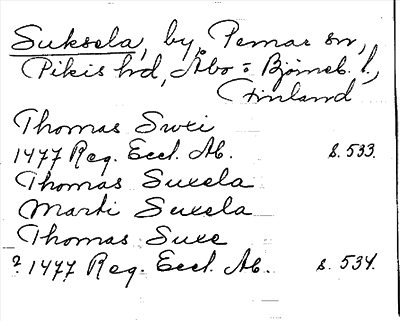 Suksela, by, Pemar sn,
Pikis hd, Åbo = Björneb. l.,
Finland
Thomas Swxi
1477 Reg. Eccl. Ab. s. 533.
Thomas Suxela
Marti Suxela
Thomas Suxe
? 1477 Reg. Eccl. Ab. s. 534.